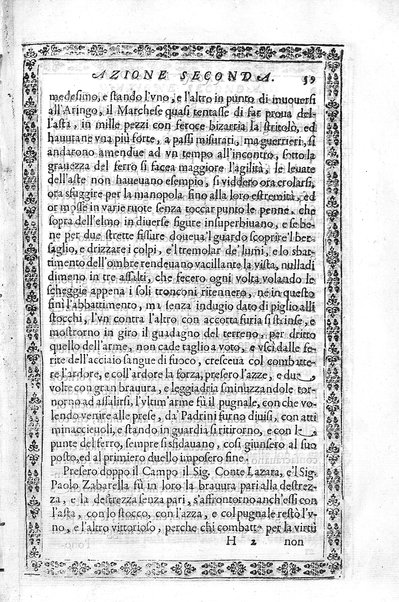 AZIONE SECONDA. 59
medesimo, e stando l'vno, e l'altro in punto di muouersi
all'Aringo, il Marchese quasi tentasse di far proua del-
l'asta, in mille pezzi con feroce bizarria la stritolò, ed
hauutane vna più forte, a passi misurati, ma guerrieri, si
andarono amendue ad vn tempo all'incontro, sotto la
grauezza del ferro si facea maggiore l'agilità, le leuate
dell'aste non haueuano esempio, si viddero ora crolarsi,
ora sfuggire per la manopola fino alla loro estremità, ed
or mosse in varie ruote senza toccar punto le penne, che
sopra dell'elmo in diuerse figure insuperbiuano, e se be-
ne per due strette fissure doueua'l guardo scoprire'l ber-
saglio, e drizzare i colpi, e'l tremolar de' lumi, e lo sbat-
timento dell'ombre rendeuano vacillante la vista, nulladi
dimeno in tre assalti, che fecero ogni volta volando le
scheggie appena i soli tronconi ritennero, nè in questo
finì l'abbattimento, ma senza indugio dato di piglio alli
stocchi, l'vn contro l'altro con accorta furia si strinse, e
mostrorno in giro il guadagno del terreno, per dritto
quello dell'arme, non cade taglio a voto, e vscì dalle fe-
rite dell'acciaio sangue di fuoco, cresceua col combatte-
re l'ardore, e coll'ardore la forza, presero l'azze, e due
volte con gran brauura, e leggiadria sminuzzandole tor-
norno ad assalirsi, l'vltim'arme fù il pugnale, con che vo-
lendo venire alle prese, da' Padrini furno diuisi, con atti
minacceuoli, e stando in guardia si ritirorno, e con le
punte del ferro, sempre si sfidauano, così giunsero al suo
posto, ed al primiero duello imposero fine.
Presero doppo il Campo il Sig. Conte Lazara, e'l Sig.
Paolo Zabarella fù in loro la brauura pari alla destrez-
za, e la destrezza senza pari, s'affrontorno anch'essi con
l'asta, con lo stocco, con l'azza, e col pugnale restò l'v-
no, e l'altro vittorioso, perche chi combatte per la virtù
H 2 non